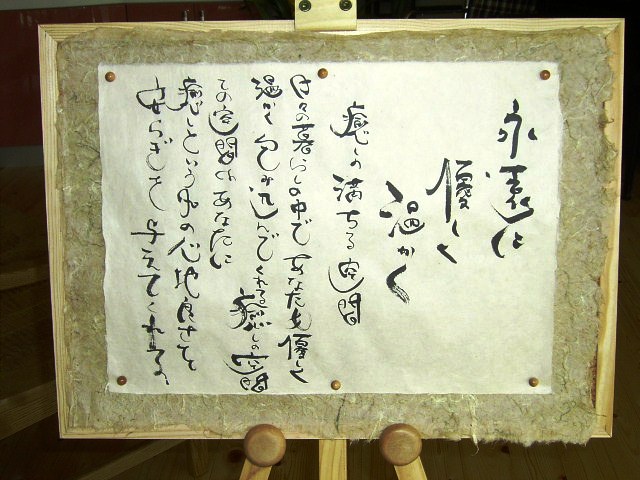 永遠に
優しく
温かく
癒しの満ちる空間
日々の暮らしの中であなたを優しく
温かく包み込んでくれる癒しの空間
その空間はあなたに
癒しという名の心地良さと
安らぎを与えてくれる。